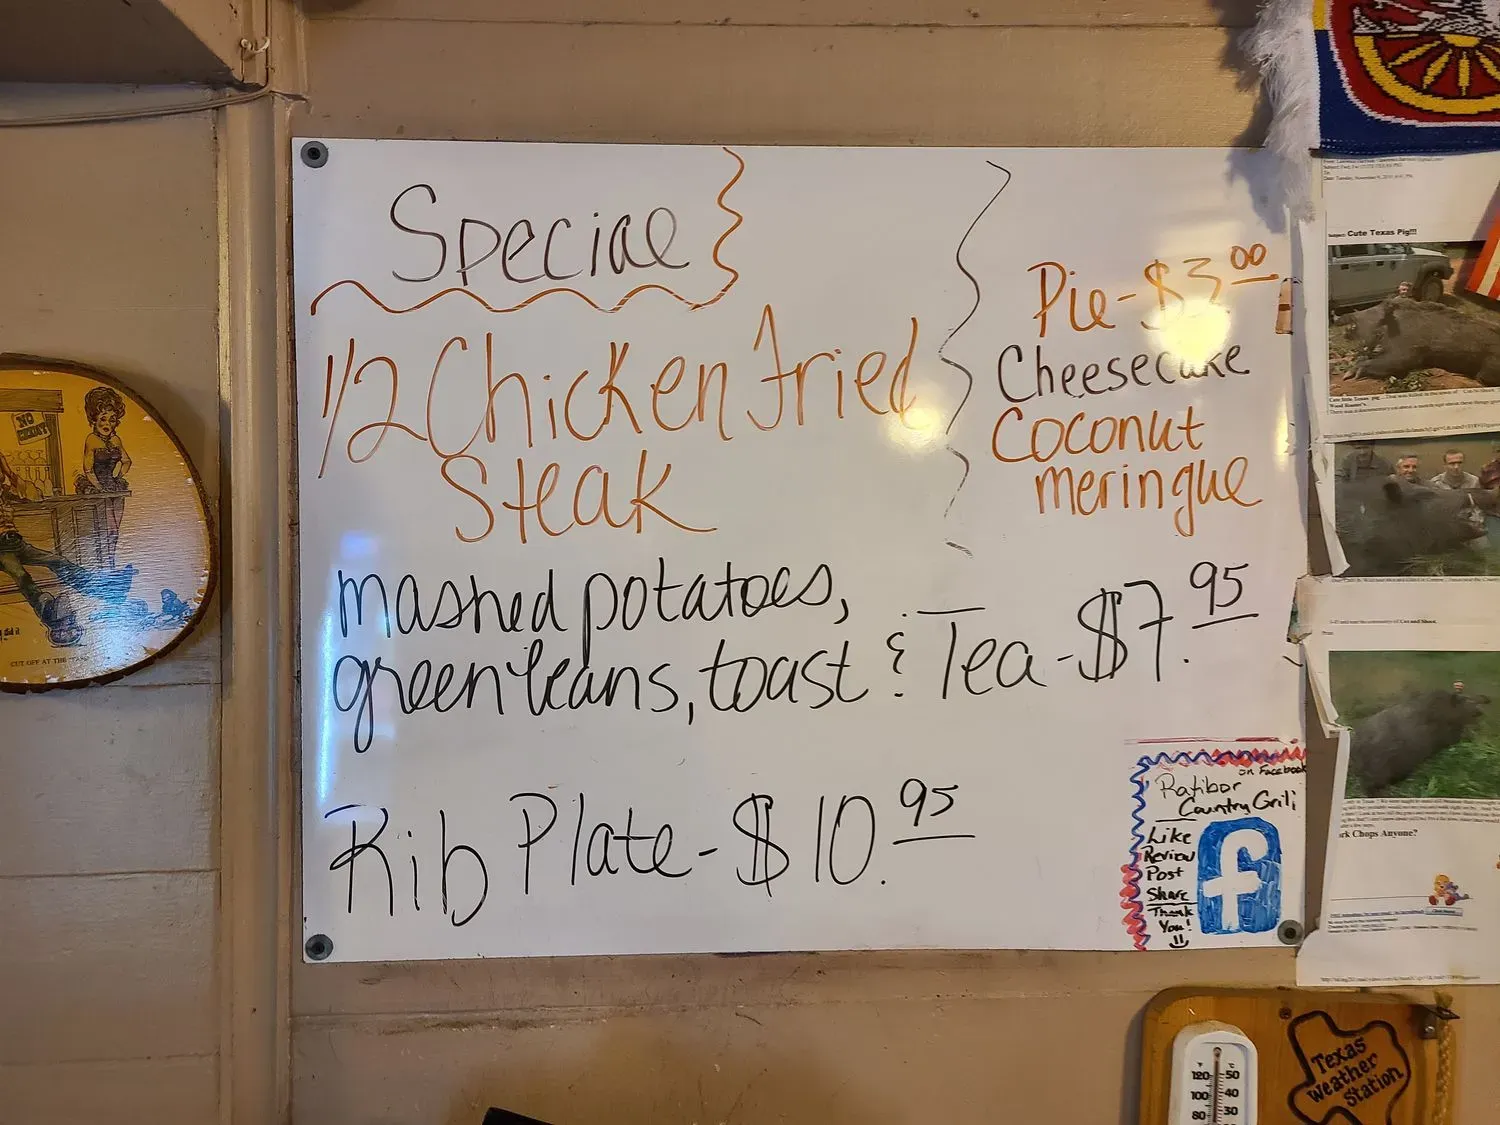 Special
1/2 Chicken Fried
Steak
mashed potatoes,
green beans, toast & Tea - $7.95
Rib Plate - $10.95
Pie - $3.00
Cheesecake
Coconut
meringue
on Facebook
Ratibor
Country Grill
Like
Review
Post
Share
Thank
You!
f
NO
CREDIT
CUT OFF AT THE
Subject: Cute Texas Pig!!!
rk Chops Anyone?
Texas
Weather
Station
°F °C
120 50
100 40
80 30